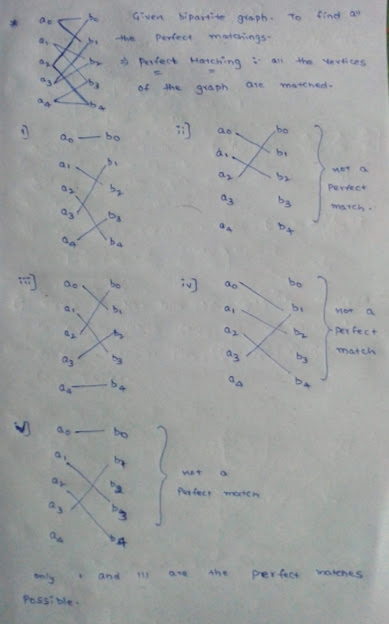 * Given bipartite graph. To find all
the perfect matchings.
⇒ Perfect Matching : all the vertices
of the graph are matched.
a0 b0
a1 b1
a2 b2
a3 b3
a4 b4
i]
a0 b0
a1 b1
a2 b2
a3 b3
a4 b4
ii]
a0 b0
a1 b1
a2 b2
a3 b3
a4 b4
not a
perfect
match.
iii]
a0 b0
a1 b1
a2 b2
a3 b3
a4 b4
iv]
a0 b0
a1 b1
a2 b2
a3 b3
a4 b4
not a
perfect
match
v]
a0 b0
a1 b1
a2 b2
a3 b3
a4 b4
not a
perfect match
only i and iii are the perfect matches
possible.